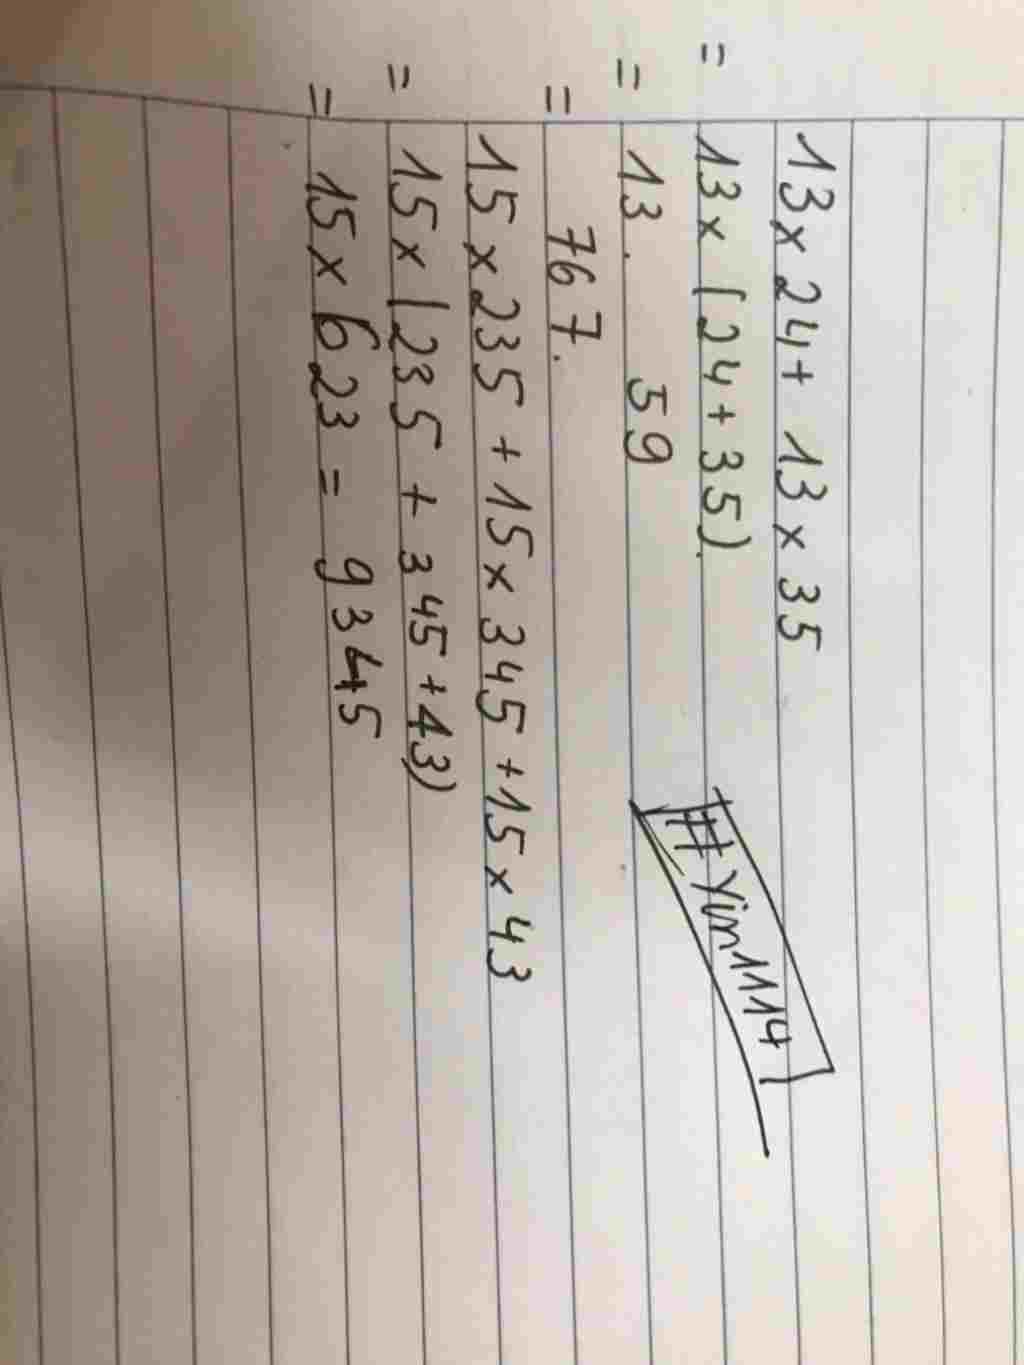 13 x 24 + 13 x 35
= 13 x (24 + 35)
= 13 . 59
= 767.
15 x 235 + 15 x 345 + 15 x 43
= 15 x (235 + 345 + 43)
= 15 x 623 = 9345
# Yim1114